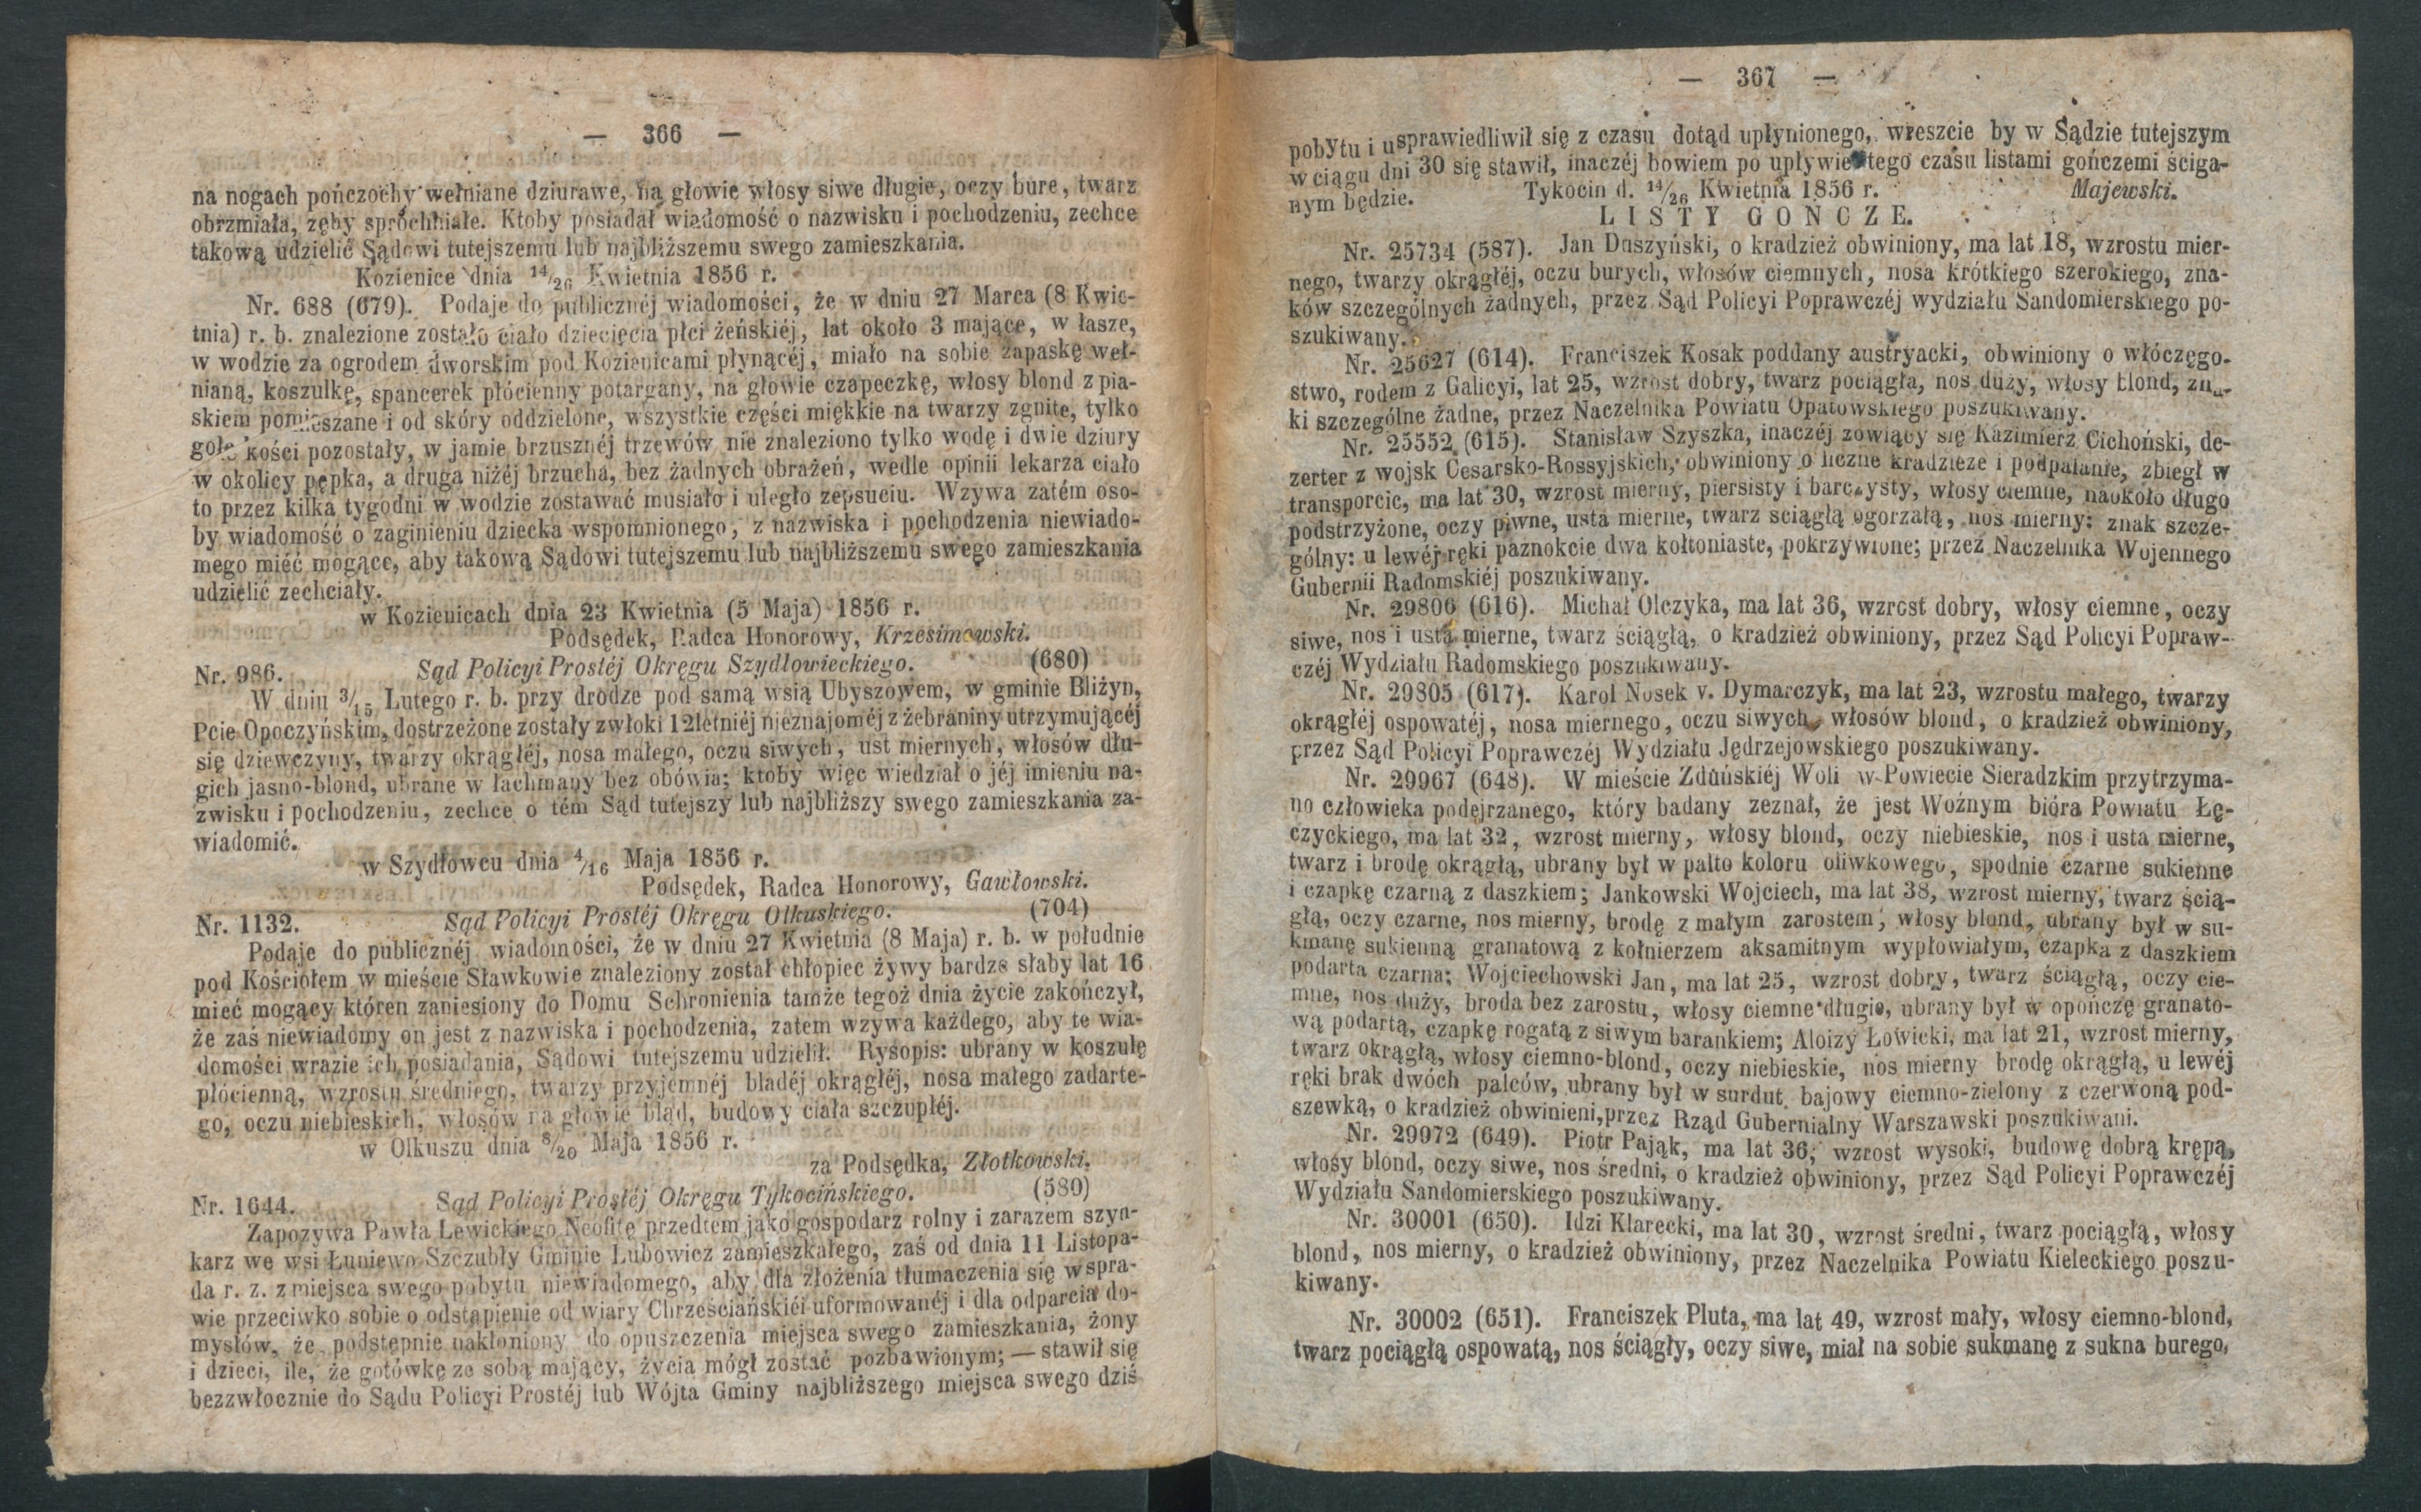 — 366 —
na nogach pończochy wełniane dziurawe, na głowie włosy siwe długie, oczy bure, twarz
obrzmiała, zęby spróchniałe. Ktoby posiadał wiadomość o nazwisku i pochodzeniu, zechce
takową udzielić Sądowi tutejszemu lub najbliższemu swego zamieszkania.
Kozienice dnia 14/26 Kwietnia 1856 r.
Nr. 688 (679). Podaje do publicznéj wiadomości, że w dniu 27 Marca (8 Kwie-
tnia) r. b. znalezione zostało ciało dziecięcia płci żeńskiéj, lat około 3 mające, w łasze,
w wodzie za ogrodem dworskim pod Kozienicami płynącéj, miało na sobie zapaskę weł-
nianą, koszulkę, spancerek płócienny potargany, na głowie czapeczkę, włosy blond z pia-
skiem pomieszane i od skóry oddzielone, wszystkie części miękkie na twarzy zgnite, tylko
gołe kości pozostały, w jamie brzusznéj trzewów nie znaleziono tylko wodę i dwie dziury
w okolicy pępka, a druga niżéj brzucha, bez żadnych obrażeń, wedle opinii lekarza ciało
to przez kilka tygodni w wodzie zostawać musiało i uległo zepsuciu. Wzywa zatém oso-
by wiadomość o zaginieniu dziecka wspomnionego, z nazwiska i pochodzenia niewiado-
mego miéć mogące, aby takową Sądowi tutejszemu lub najbliższemu swego zamieszkania
udzielić zechciały.
w Kozienicach dnia 23 Kwietnia (5 Maja) 1856 r.
Podsędek, Radca Honorowy, Krzesimowski.
Nr. 986. Sąd Policyi Prostéj Okręgu Szydłowieckiego. (680)
W dniu 3/15 Lutego r. b. przy drodze pod samą wsią Ubyszowem, w gminie Bliżyn,
Pcie Opoczyńskim, dostrzeżone zostały zwłoki 12letniéj nieznajoméj z żebraniny utrzymującéj
się dziewczyny, twarzy okrągłéj, nosa małego, oczu siwych, ust miernych, włosów dłu-
gich jasno-blond, ubrane w łachmany bez obówia; ktoby więc wiedział o jéj imieniu na-
zwisku i pochodzeniu, zechce o tém Sąd tutejszy lub najbliższy swego zamieszkania za-
wiadomić.
w Szydłowcu dnia 4/16 Maja 1856 r.
Podsędek, Radca Honorowy, Gawłowski.
Nr. 1132. Sąd Policyi Prostéj Okręgu Olkuskiego. (704)
Podaje do publicznéj wiadomości, że w dniu 27 Kwietnia (8 Maja) r. b. w południe
pod Kościołem w mieście Sławkowie znaleziony został chłopiec żywy bardzo słaby lat 16
mieć mogący któren zaniesiony do Domu Schronienia tamże tegoż dnia życie zakończył,
że zaś niewiadomy on jest z nazwiska i pochodzenia, zatem wzywa każdego, aby te wia-
domości wrazie ich posiadania, Sądowi tutejszemu udzielił. Rysopis: ubrany w koszulę
płócienną, wzrostu średniego, twarzy przyjemnéj bladéj okrągłéj, nosa małego zadarte-
go, oczu niebieskich, włosów na głowie bląd, budowy ciała szczupłéj.
w Olkuszu dnia 8/20 Maja 1856 r.
za Podsędka, Złotkowski.
Nr. 1644. Sąd Policyi Prostéj Okręgu Tykocińskiego. (589)
Zapozywa Pawła Lewickiego Neofitę przedtem jako gospodarz rolny i zarazem szyn-
karz we wsi Łuniewo Szczubły Gminie Lubowicz zamieszkałego, zaś od dnia 11 Listopa-
da r. z. z miejsca swego pobytu niewiadomego, aby dla złożenia tłumaczenia się w spra-
wie przeciwko sobie o odstąpienie od wiary Chrześciańskiéj uformowanéj i dla odparcia do-
mysłów, że podstępnie nakłoniony do opuszczenia miejsca swego zamieszkania, żony
i dzieci, ile, że gotówkę ze sobą mający, życia mógł zostać pozbawionym; — stawił się
bezzwłocznie do Sądu Policyi Prostéj lub Wójta Gminy najbliższego miejsca swego dziś
— 367 —
pobytu i usprawiedliwił się z czasu dotąd upłynionego, wreszcie by w Sądzie tutejszym
w ciągu dni 30 się stawił, inaczéj bowiem po upływie tego czasu listami gończemi ściga-
nym będzie. Tykocin d. 14/26 Kwietnia 1856 r. Majewski.
LISTY GOŃCZE.
Nr. 25734 (587). Jan Duszyński, o kradzież obwiniony, ma lat 18, wzrostu mier-
nego, twarzy okrągłéj, oczu burych, włosów ciemnych, nosa krótkiego szerokiego, zna-
ków szczególnych żadnych, przez Sąd Policyi Poprawczéj wydziału Sandomierskiego po-
szukiwany.
Nr. 25627 (614). Franciszek Kosak poddany austryacki, obwiniony o włóczęgo-
stwo, rodem z Galicyi, lat 25, wzrost dobry, twarz pociągła, nos duży, włosy blond, zna-
ki szczególne żadne, przez Naczelnika Powiatu Opatowskiego poszukiwany.
Nr. 25552 (615). Stanisław Szyszka, inaczéj zowiący się Kazimierz Cichoński, de-
zerter z wojsk Cesarsko-Rossyjskich, obwiniony o liczne kradzieże i podpalanie, zbiegł w
transporcie, ma lat 30, wzrost mierny, piersisty i barczysty, włosy ciemne, naokoło długo
podstrzyżone, oczy piwne, usta mierne, twarz ściągłą ogorzałą, nos mierny: znak szcze-
gólny: u lewéj ręki paznokcie dwa kołtoniaste, pokrzywione; przez Naczelnika Wojennego
Gubernii Radomskiéj poszukiwany.
Nr. 29806 (616). Michał Olczyka, ma lat 36, wzrost dobry, włosy ciemne, oczy
siwe, nos i usta mierne, twarz ściągłą, o kradzież obwiniony, przez Sąd Policyi Popraw-
czéj Wydziału Radomskiego poszukiwany.
Nr. 29805 (617). Karol Nosek v. Dymarczyk, ma lat 23, wzrostu małego, twarzy
okrągłéj ospowatéj, nosa miernego, oczu siwych, włosów blond, o kradzież obwiniony,
przez Sąd Policyi Poprawczéj Wydziału Jędrzejowskiego poszukiwany.
Nr. 29967 (648). W mieście Zduńskiéj Woli w Powiecie Sieradzkim przytrzyma-
no człowieka podejrzanego, który badany zeznał, że jest Woźnym bióra Powiatu Łę-
czyckiego, ma lat 32, wzrost mierny, włosy blond, oczy niebieskie, nos i usta mierne,
twarz i brodę okrągłą, ubrany był w palto koloru oliwkowego, spodnie czarne sukienne
i czapkę czarną z daszkiem; Jankowski Wojciech, ma lat 38, wzrost mierny, twarz ścią-
głą, oczy czarne, nos mierny, brodę z małym zarostem, włosy blond, ubrany był w su-
kmanę sukienną granatową z kołnierzem aksamitnym wypłowiałym, czapka z daszkiem
podarta czarna; Wojciechowski Jan, ma lat 25, wzrost dobry, twarz ściągłą, oczy cie-
mne, nos duży, broda bez zarostu, włosy ciemne długie, ubrany był w opończę granato-
wą podartą, czapkę rogatą z siwym barankiem; Aloizy Łowicki, ma lat 21, wzrost mierny,
twarz okrągłą, włosy ciemno-blond, oczy niebieskie, nos mierny brodę okrągłą, u lewéj
ręki brak dwóch palców, ubrany był w surdut bajowy ciemno-zielony z czerwoną pod-
szewką, o kradzież obwinieni, przez Rząd Gubernialny Warszawski poszukiwani.
Nr. 29972 (649). Piotr Pająk, ma lat 36, wzrost wysoki, budowę dobrą krępą,
włosy blond, oczy siwe, nos średni, o kradzież obwiniony, przez Sąd Policyi Poprawczéj
Wydziału Sandomierskiego poszukiwany.
Nr. 30001 (650). Idzi Klarecki, ma lat 30, wzrost średni, twarz pociągłą, włosy
blond, nos mierny, o kradzież obwiniony, przez Naczelnika Powiatu Kieleckiego poszu-
kiwany.
Nr. 30002 (651). Franciszek Pluta, ma lat 49, wzrost mały, włosy ciemno-blond,
twarz pociągłą ospowatą, nos ściągły, oczy siwe, miał na sobie sukmanę z sukna burego,